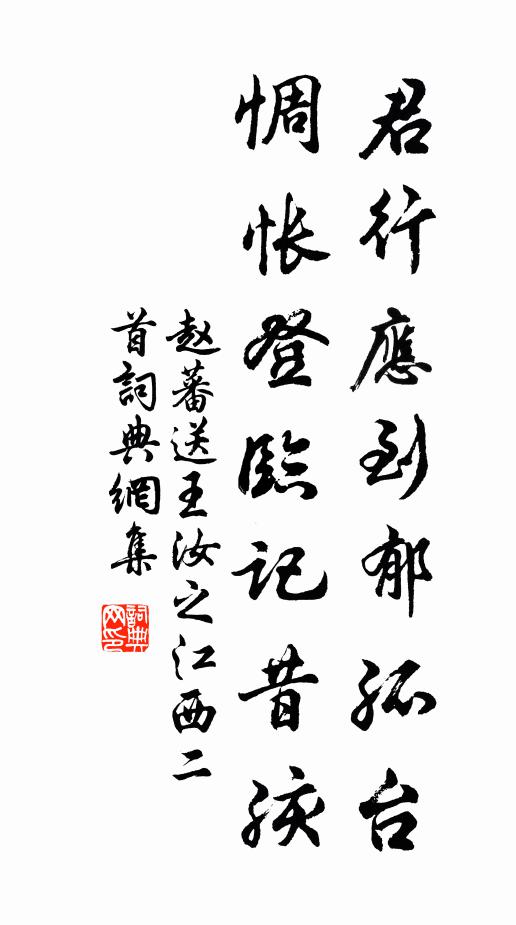 君行應到郁孤台
惆怅登臨记昔孩
赵蕃送王汝之江西二
首詞典網集
詞典网印